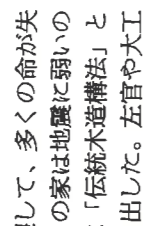 して、多くの命が失
の家は地震に弱いの
「伝統木造構法」と
出した。左官や大工